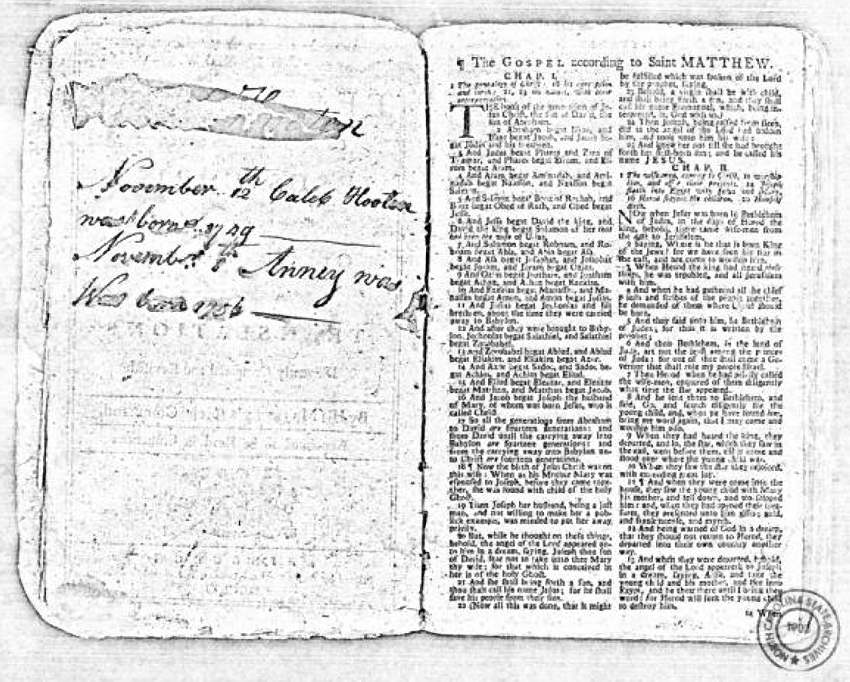 November 12th Caleb Hooten
was born 1749
November Anney was
Was born 1756
¶ The GOSPEL according to Saint MATTHEW.
CHAP. I.
THE book of the generation of Je-
sus Christ, the son of David, the
son of Abraham.
2 Abraham begat Isaac, and
Isaac begat Jacob, and Jacob be-
gat Judas and his brethren.
3 And Judas begat Phares and Zara of
Thamar, and Phares begat Esrom, and Es-
rom begat Aram.
4 And Aram begat Aminadab, and Ami-
nadab begat Naasson, and Naasson begat
Salmon.
5 And Salmon begat Booz of Rachab, and
Booz begat Obed of Ruth, and Obed begat
Jesse.
6 And Jesse begat David the king, and
David the king begat Solomon of her that
had been the wife of Urias.
7 And Solomon begat Roboam, and Ro-
boam begat Abia, and Abia begat Asa.
8 And Asa begat Josaphat, and Josaphat
begat Joram, and Joram begat Ozias.
9 And Ozias begat Joatham, and Joatham
begat Achaz, and Achaz begat Ezekias.
10 And Ezekias begat Manasses, and Ma-
nasses begat Amon, and Amon begat Josias.
11 And Josias begat Jechonias and his
brethren, about the time they were carried
away to Babylon.
12 And after they were brought to Baby-
lon, Jechonias begat Salathiel, and Salathiel
begat Zorobabel.
13 And Zorobabel begat Abiud, and Abiud
begat Eliakim, and Eliakim begat Azor.
14 And Azor begat Sadoc, and Sadoc be-
gat Achim, and Achim begat Eliud.
15 And Eliud begat Eleazar, and Eleazar
begat Matthan, and Matthan begat Jacob.
16 And Jacob begat Joseph the husband
of Mary, of whom was born Jesus, who is
called Christ.
17 So all the generations from Abraham
to David are fourteen generations: and
from David until the carrying away into
Babylon are fourteen generations: and
from the carrying away into Babylon un-
to Christ are fourteen generations.
18 ¶ Now the birth of Jesus Christ was on
this wise: When as his Mother Mary was
espoused to Joseph, before they came toge-
ther, she was found with child of the holy
Ghost.
19 Then Joseph her husband, being a just
man, and not willing to make her a pub-
lick example, was minded to put her away
privily.
20 But, while he thought on these things,
behold, the angel of the Lord appeared un-
to him in a dream, saying, Joseph thou son
of David, fear not to take unto thee Mary
thy wife: for that which is conceived in
her is of the holy Ghost.
21 And she shall bring forth a son, and
thou shalt call his name Jesus: for he shall
save his people from their sins.
22 (Now all this was done, that it might
be fulfilled which was spoken of the Lord
by the prophet, saying,
23 Behold, a virgin shall be with child,
and shall bring forth a son, and they shall
call his name Emmanuel, which, being in-
terpreted, is, God with us.)
24 Then Joseph, being raised from sleep,
did as the angel of the Lord had bidden
him, and took unto him his wife:
25 And knew her not till she had brought
forth her first-born son; and he called his
name JESUS.
CHAP. II.
NOW when Jesus was born in Bethlehem
of Judea, in the days of Herod the
king, behold, there came wise-men from
the east to Jerusalem,
2 Saying, Where is he that is born King
of the Jews? for we have seen his star in
the east, and are come to worship him.
3 When Herod the king had heard these
things, he was troubled, and all Jerusalem
with him.
4 And when he had gathered all the chief
Priests and scribes of the people together,
he demanded of them where Christ should
be born.
5 And they said unto him, In Bethlehem
of Judea: for thus it is written by the
prophet;
6 And thou Bethlehem, in the land of
Juda, art not the least among the princes
of Juda: for out of thee shall come a Go-
vernor that shall rule my people Israel.
7 Then Herod, when he had privily called
the wise-men, enquired of them diligently
what time the star appeared.
8 And he sent them to Bethlehem, and
said, Go, and search diligently for the
young child, and, when ye have found him,
bring me word again, that I may come and
worship him also.
9 When they had heard the king, they
departed, and lo, the star, which they saw in
the east, went before them, till it came and
stood over where the young child was.
10 When they saw the star they rejoiced,
with exceeding great joy.
11 ¶ And when they were come into the
house, they saw the young child with Mary
his mother, and fell down, and worshipped
him: and, when they had opened their trea-
sures, they presented unto him gifts; gold,
and frankincense, and myrrh.
12 And being warned of God in a dream,
that they should not return to Herod, they
departed into their own country another
way.
13 And when they were departed, behold,
the angel of the Lord appeareth to Joseph
in a dream, saying, Arise, and take the
young child and his mother, and flee into
Egypt, and be thou there until I bring thee
word: for Herod will seek the young child
to destroy him.
14 When
NORTH CAROLINA STATE ARCHIVES